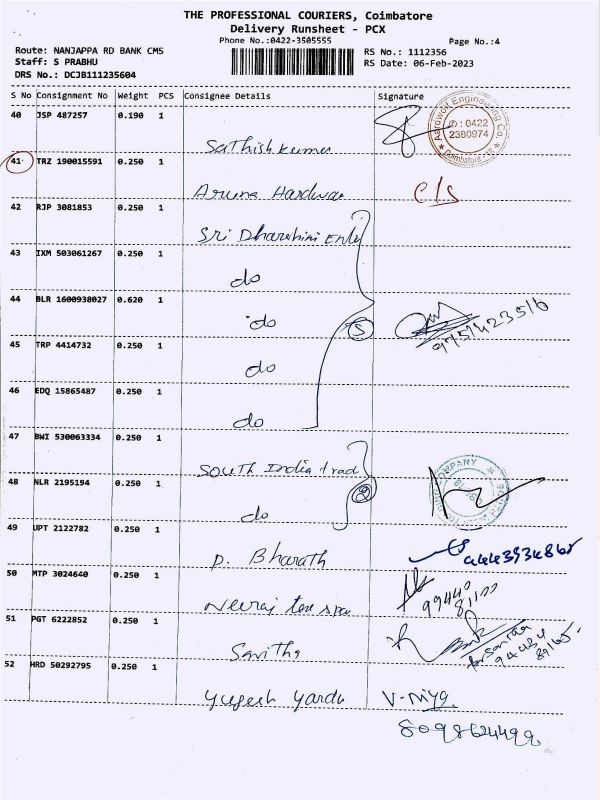 THE PROFESSIONAL COURIERS, Coimbatore
Delivery Runsheet - PCX
Phone No.:0422-3505555
Page No.:4
Route: NANJAPPA RD BANK CMS
RS No.: 1112356
Staff: S PRABHU
RS Date: 06-Feb-2023
DRS No.: DCJB111235604
S No Consignment No Weight PCS Consignee Details Signature
40 JSP 487257 0.190 1
Sathish kumar
Aardwolf Engineering Co.
✆ : 0422
2380974
Coimbatore - 18
41 TRZ 190015591 0.250 1
Aruna Hardwar
C/S
42 RJP 3081853 0.250 1
Sri Dharshini Ente
43 IXM 503061267 0.250 1
do
44 BLR 1600938027 0.620 1
do
5
9751423516
45 TRP 4414732 0.250 1
do
46 EDQ 15865487 0.250 1
do
47 BWI 530063334 0.250 1
South India trad
48 NLR 2195194 0.250 1
do
2
COMPANY
49 UPT 2122782 0.250 1
P. Bharath
50 MTP 3024640 0.250 1
Neeraj tex spa
99440
81177
51 PGT 6222852 0.250 1
Savitha
52 HRD 50292795 0.250 1
Yugesh Yardu
V-niya
8098624499